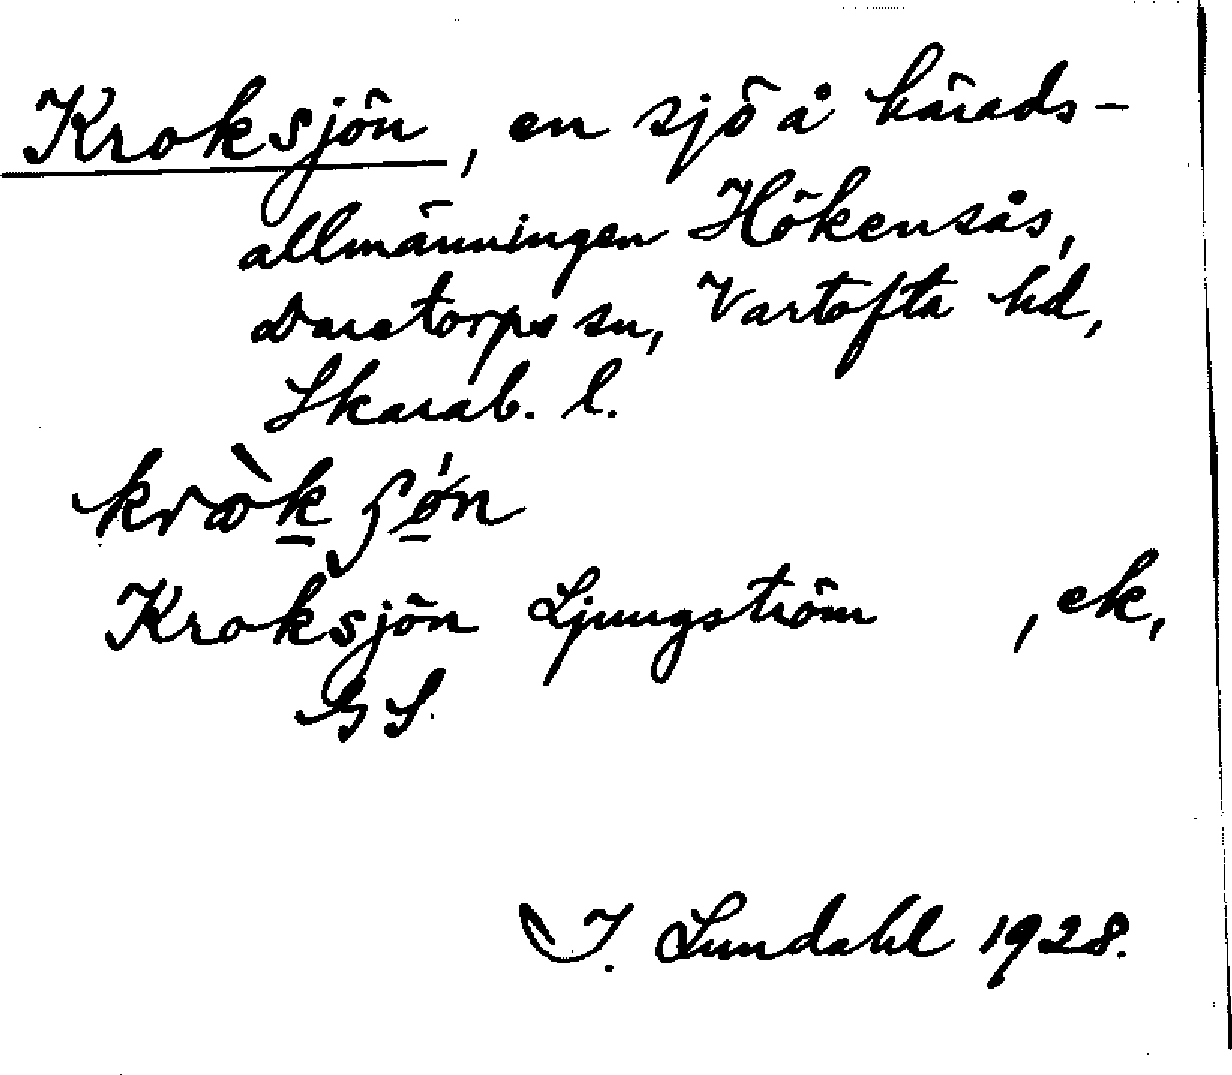 Kroksjön, en sjö å härads-
allmänningen Hökensås,
Daretorps sn, Vartofta hd,
Skarab. l.
Kroksjön Ljungström , ek,
GS.
I. Lundahl 1928.